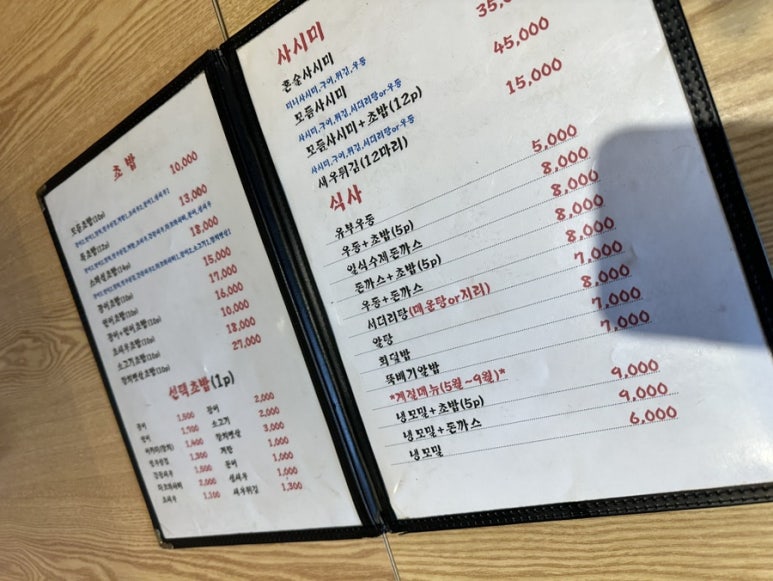 초밥
모듬초밥(10p) 10,000
특초밥(12p) 13,000
스페셜초밥(14p) 18,000
광어초밥(10p) 15,000
연어초밥(10p) 17,000
광어+연어초밥(10p) 16,000
초새우초밥(10p) 10,000
소고기초밥(10p) 18,000
참치뱃살초밥(10p) 27,000
선택초밥(1p)
광어 1,500 장어 2,000
연어 1,700 소고기 2,000
1,400 참치뱃살 3,000
1,300 계란 1,000
간장새우 1,500 문어 1,000
타코와사비 2,000 생새우 1,000
초새우 1,100 새우튀김 1,300
사시미
혼술사시미 35,
미니사시미,구이,튀김,우동
모듬사시미 45,000
사시미,구이,튀김,서더리탕or우동
모듬사시미+초밥(12p)
사시미,구이,튀김,서더리탕or우동
새우튀김(12마리) 15,000
식사
유부우동 5,000
우동+초밥(5p) 8,000
일식수제돈까스 8,000
돈까스+초밥(5p) 8,000
우동+돈까스 8,000
서더리탕(매운탕or지리) 7,000
알탕 8,000
회덮밥 7,000
뚝배기알밥 7,000
*계절메뉴(5월~9월)*
냉모밀+초밥(5p) 9,000
냉모밀+돈까스 9,000
냉모밀 6,000